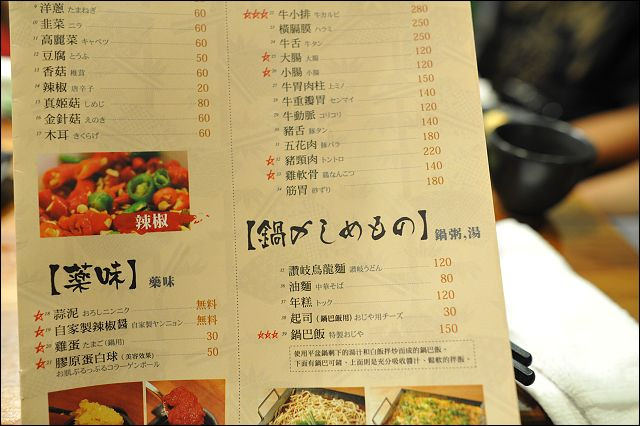 9 洋蔥 たまねぎ 60
10 韭菜 ニラ 60
11 高麗菜 キャベツ 60
12 豆腐 とうふ 50
13 香菇 椎茸 60
14 辣椒 唐辛子 20
15 真姬菇 しめじ 80
16 金針菇 えのき 60
17 木耳 きくらげ 60
辣椒
【薬味】 藥味
18 蒜泥 おろしニンニク 無料
19 自家製辣椒醬 自家製ヤンニョン 無料
20 雞蛋 たまご (鍋用) 30
21 膠原蛋白球 (美容效果) 50
お肌ぷるっぷるコラーゲンボール
22 牛小排 牛カルビ 280
23 橫膈膜 ハラミ 250
24 牛舌 牛タン 250
25 大腸 大腸 120
26 小腸 小腸 120
27 牛胃肉柱 上ミノ 150
28 牛重瓣胃 センマイ 140
29 牛動脈 コリコリ 120
30 豬舌 豚タン 140
31 五花肉 豚バラ 180
32 豬頸肉 トントロ 220
33 雞軟骨 鶏なんこつ 140
34 筋胃 砂ずり 180
【鍋〆しめもの】 鍋粥,湯
35 讚岐烏龍麵 讃岐うどん 120
36 油麵 中華そば 80
37 年糕 トック 120
38 起司 (鍋巴飯用) おじや用チーズ 30
39 鍋巴飯 特製おじや 150
使用平盆鍋剩下的湯汁和白飯拌炒而成的鍋巴飯。
下面有鍋巴可鏟、上面則是充分吸收醬汁、鬆軟的拌飯。